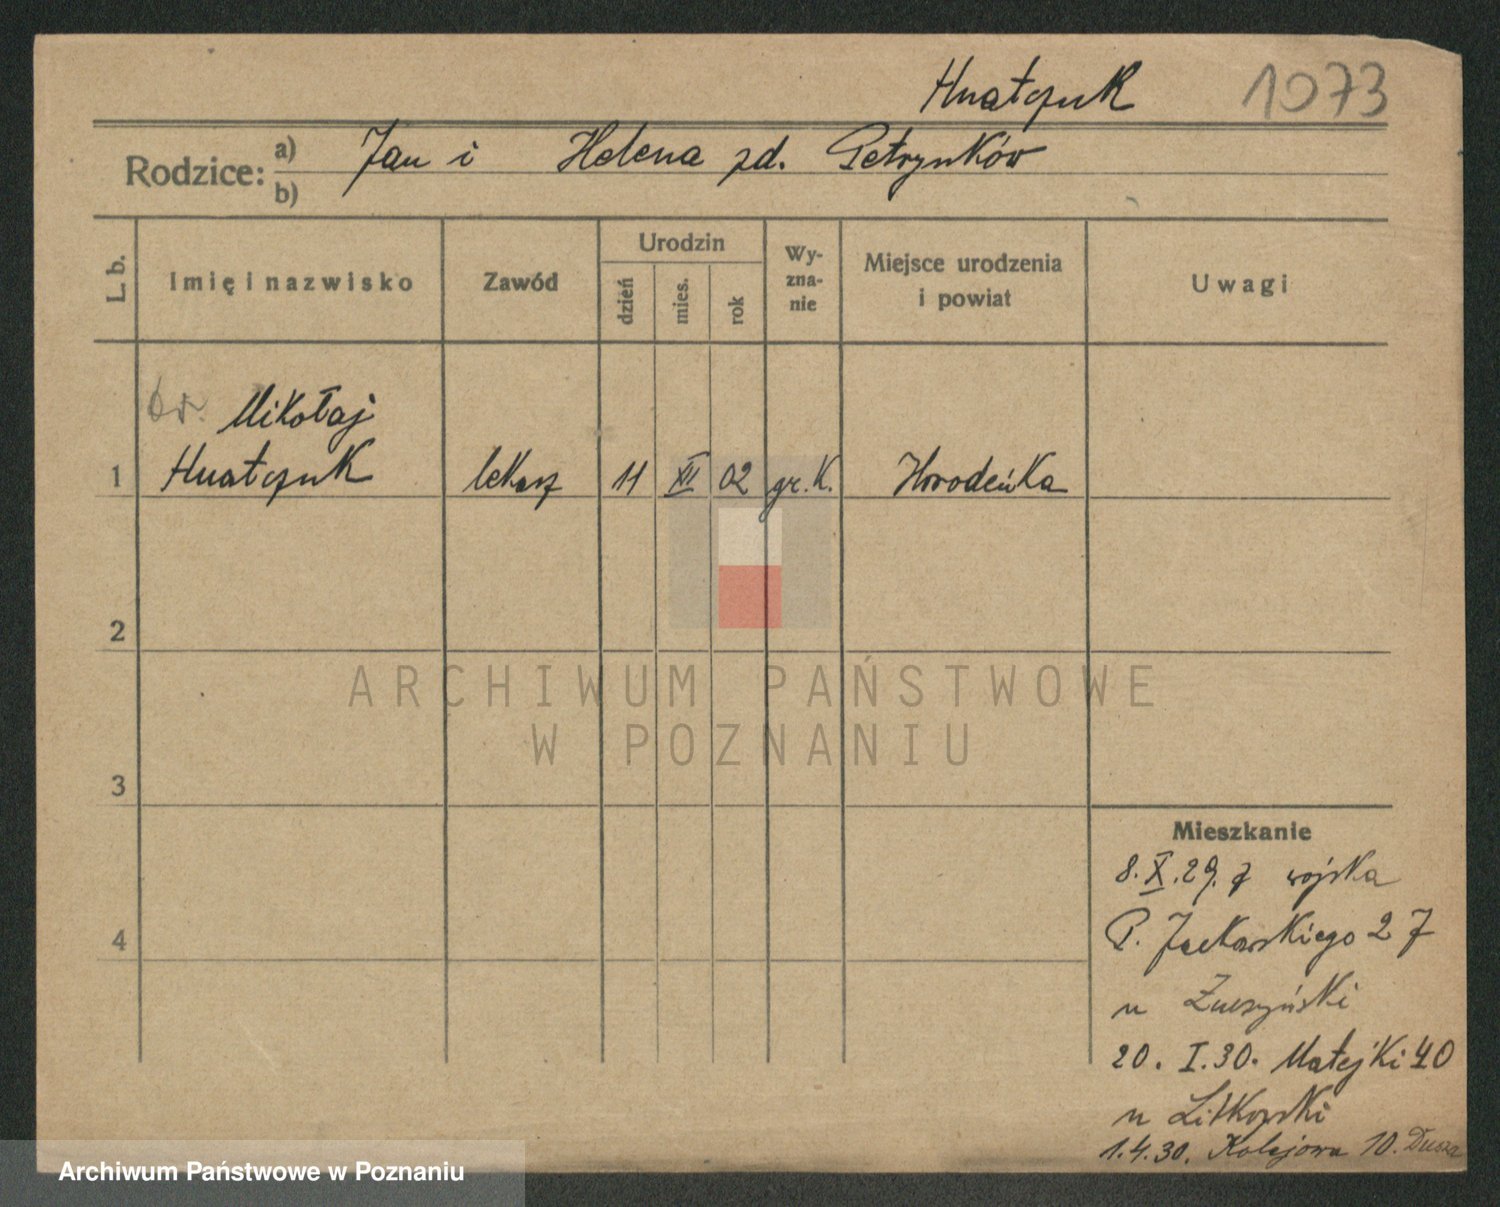 Hnatczuk 1073
Rodzice: a) Jan i Helena zd. Petrynków
b)
L. b. Imię i nazwisko Zawód Urodzin dzień mies. rok Wy-zna-nie Miejsce urodzenia i powiat Uwagi
dr. Mikołaj
1 Hnatczuk lekarz 11 XII 02 gr. k. Horodeńka
2
3
4
Mieszkanie
8. X. 29. z wojska
P. Jackowskiego 27
u
20. I. 30. Matejki 40
u
1.4.30. Kolejowa 10.
ARCHIWUM PAŃSTWOWE
W POZNANIU
Archiwum Państwowe w Poznaniu